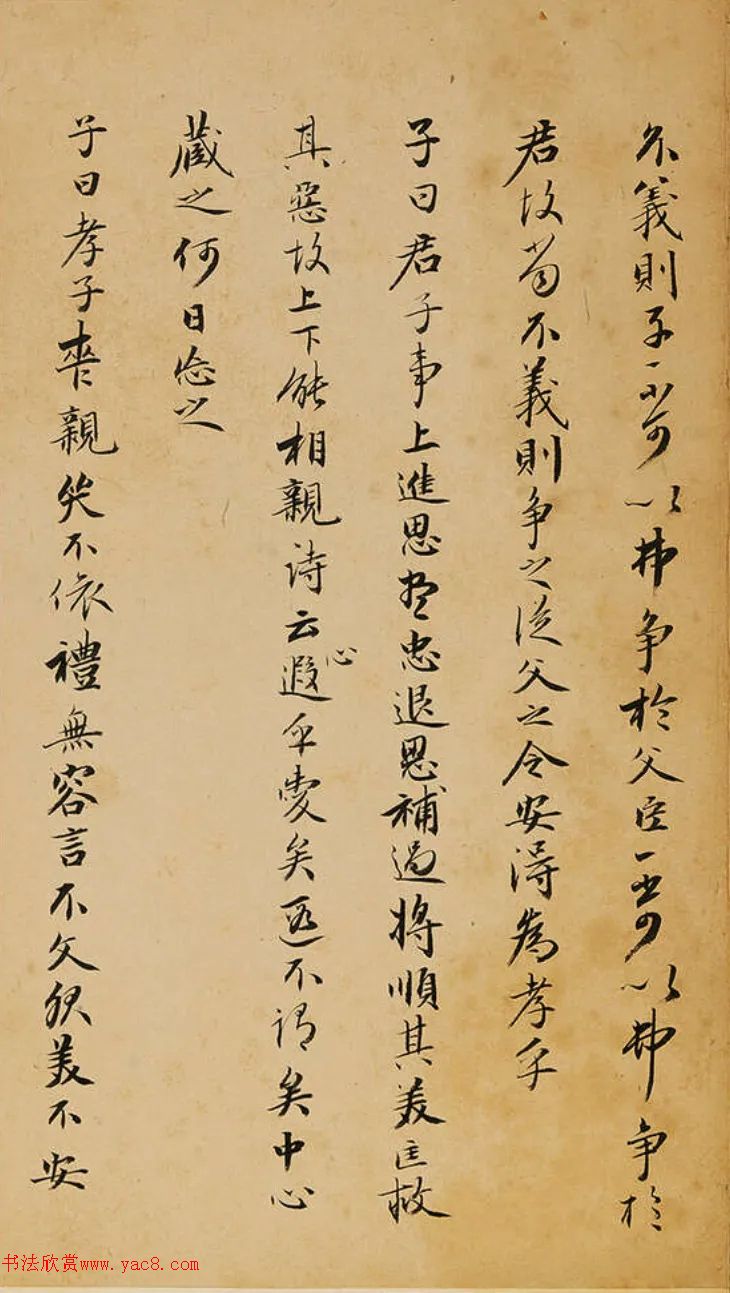 不義則子不可以弗争於父臣不可以弗争於
君故當不義則争之從父之令安得為孝乎
子曰君子事上進思盡忠退思補過將順其美匡救
其惡故上下能相親詩云遐心乎愛矣遐不謂矣中心
藏之何日忘之
子曰孝子喪親哭不依禮無容言不文服美不安
书法欣赏www.yac8.com